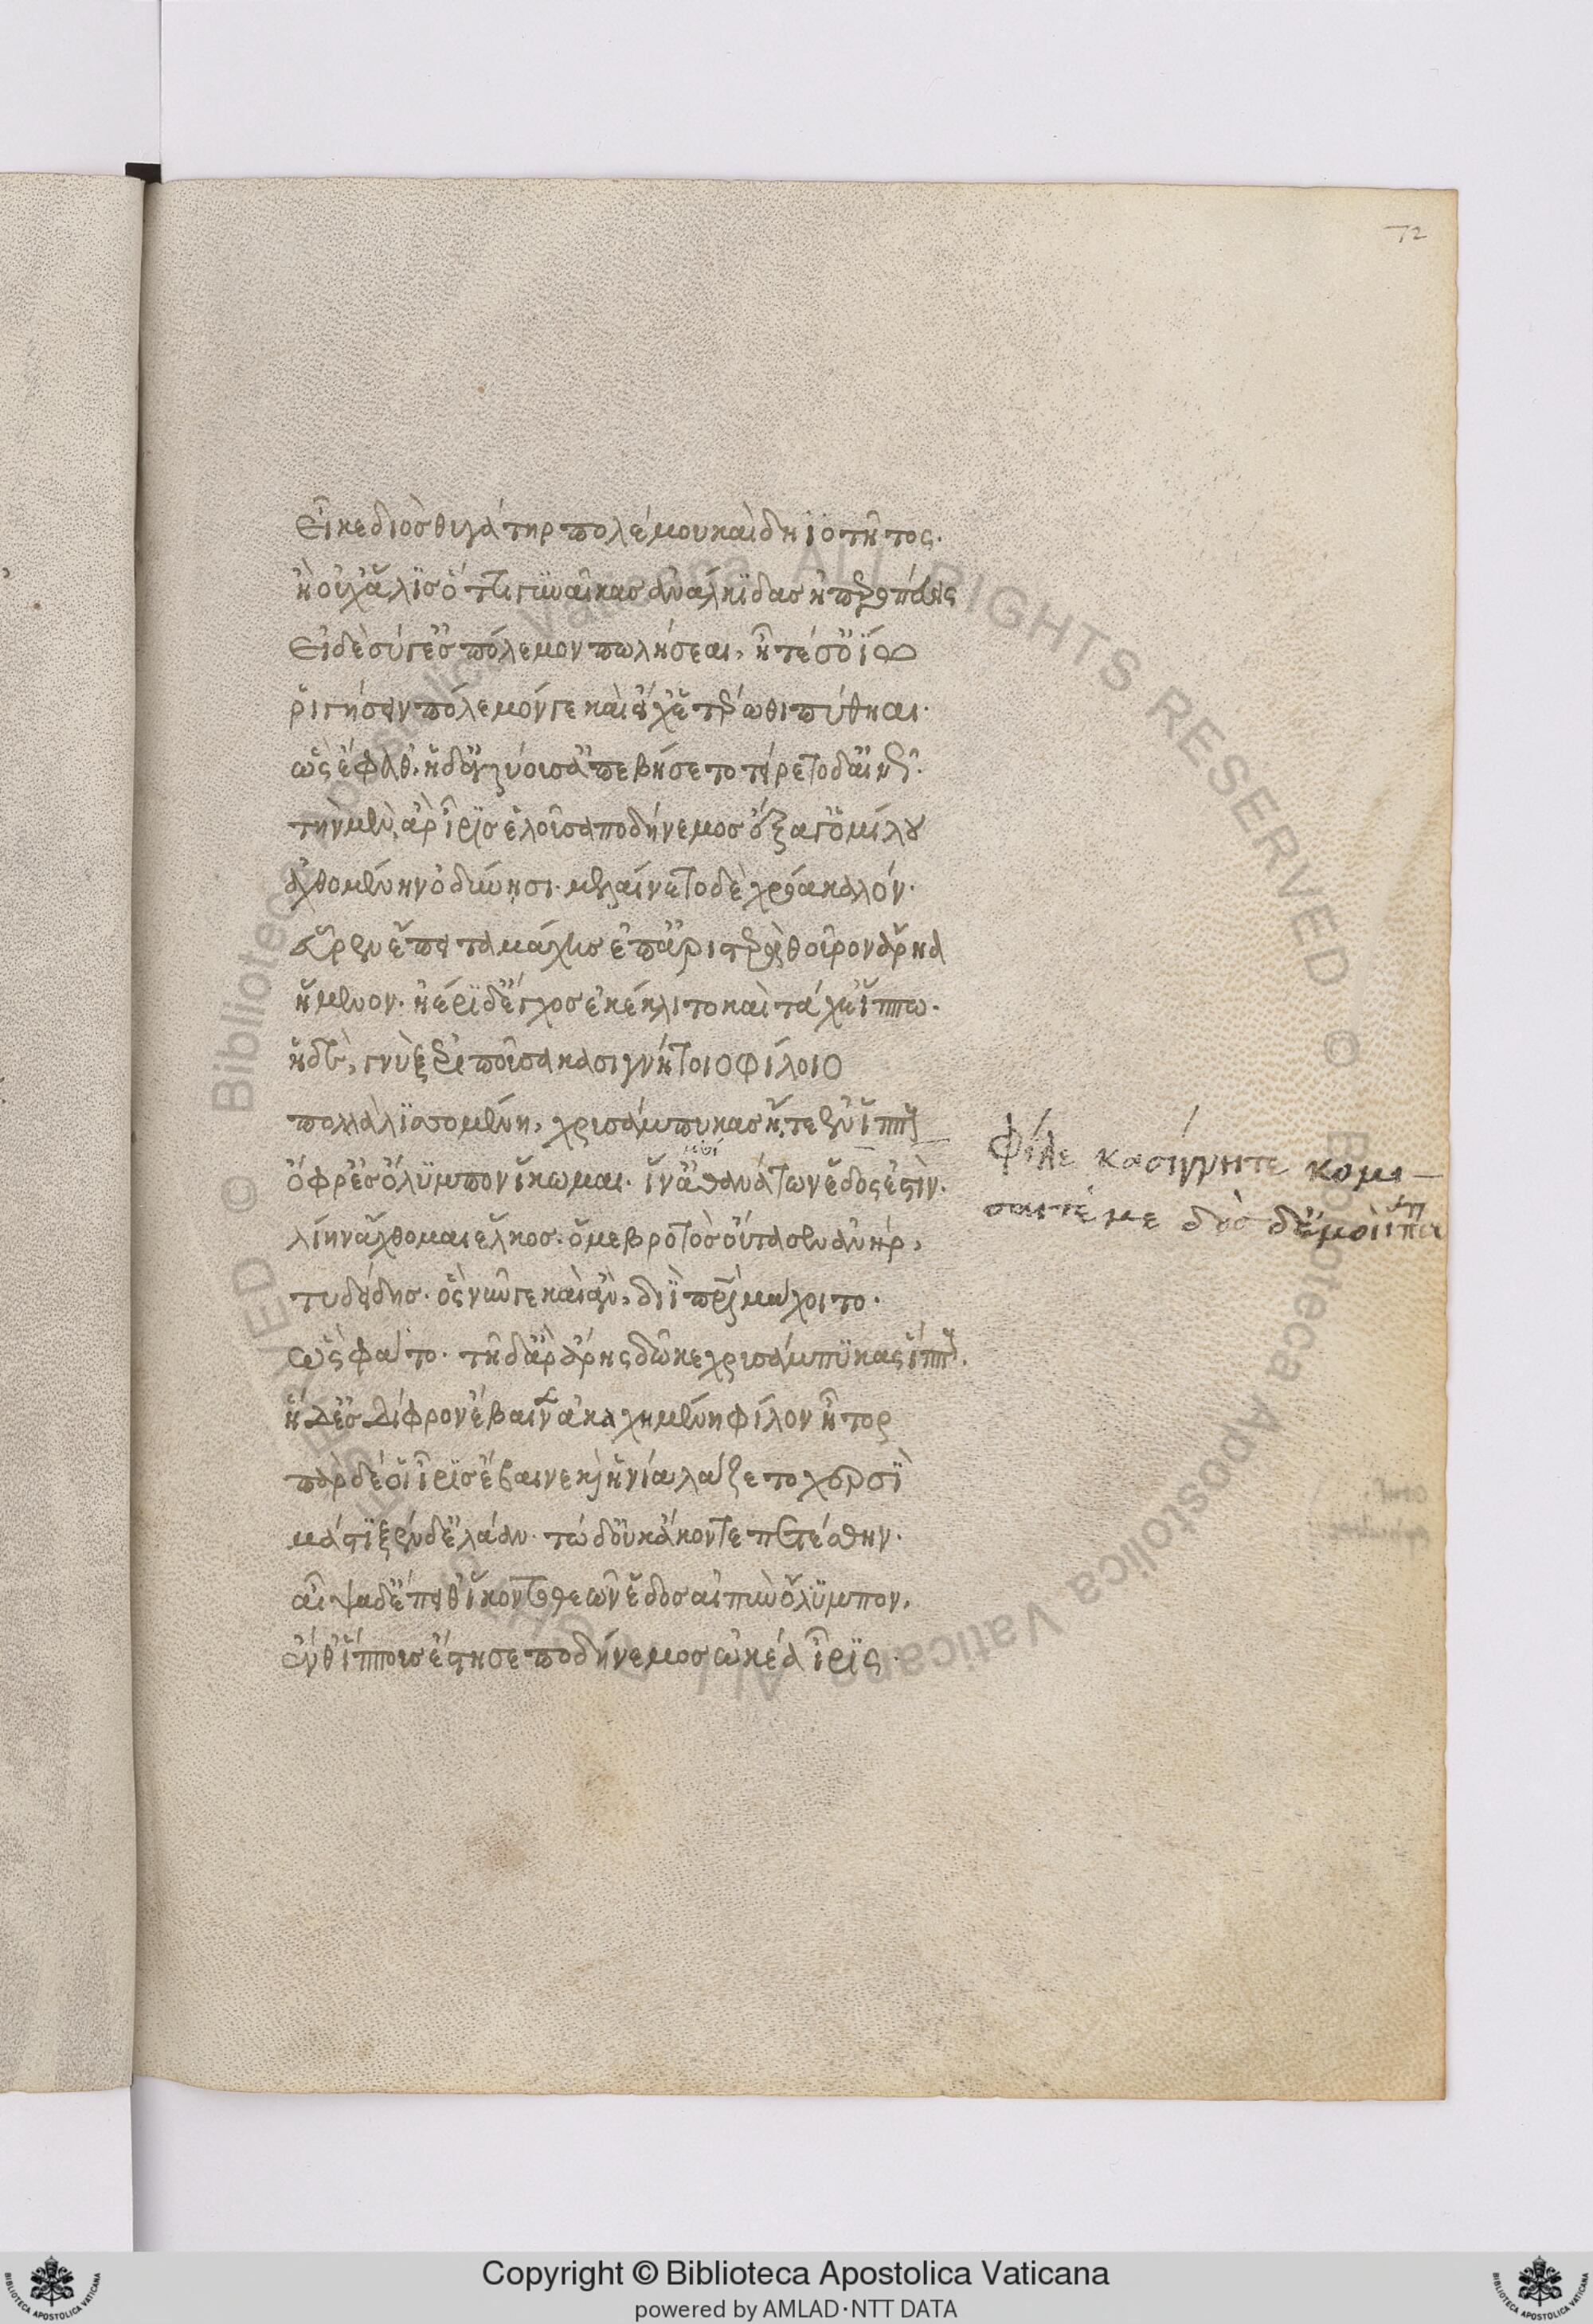 72
εἶκε διὸς θύγατερ πολέμου καὶ δηϊοτῆτος.
ἢ οὐχ ἅλις ὅττι γυναῖκας ἀνάλκιδας ἠπεροπεύεις
εἰ δὲ σύ γ' ἐς πόλεμον πωλήσεαι, ἦ τέ σ' ὀΐω
ῥιγήσειν πόλεμόν γε καὶ εἴ χ' ἑτέρωθι πύθηαι.
ὣς ἔφαθ', ἡ δ' ἀλύουσ' ἀπεβήσετο τείρετο δ' αἰνῶς.
τὴν μὲν ἄρ' ἶρις ἑλοῦσα ποδήνεμος ἔξαγ' ὁμίλου
ἀχθομένην ὀδύνῃσι. μελαίνετο δὲ χρόα καλόν.
εὗρεν ἔπειτα μάχης ἐπ' ἀριστερὰ θοῦρον ἄρηα
ἥμενον. ἠέρι δ' ἔγχος ἐκέκλιτο καὶ ταχέ' ἵππω.
ἡ δὲ, γνὺξ ἐριποῦσα κασιγνήτοιο φίλοιο
πολλὰ λισσομένη, χρυσάμπυκας ᾔτεεν ἵππους
ὄφρ' ἐς ὄλυμπον ἵκωμαι. ἵν' ἀθανάτων ἕδος ἐστίν.
λίην ἄχθομαι ἕλκος. ὅ με βροτὸς οὔτασεν ἀνήρ,
τυδείδης. ὃς νῦν γε καὶ ἂν, διῒ πατρὶ μάχοιτο.
ὣς φάτο. τῇ δ' ἄρ' ἄρης δῶκε χρυσάμπυκας ἵππους.
ἡ δ' ἐς δίφρον ἔβαινεν ἀκηχεμένη φίλον ἦτορ
πὰρ δέ οἱ ἶρις ἔβαινε καὶ ἡνία λάζετο χερσὶ
μάστιξεν δ' ἐλάαν. τὼ δ' οὐκ ἄκοντε πετέσθην.
αἶψα δ' ἔπειθ' ἵκοντο θεῶν ἕδος αἰπὺν ὄλυμπον,
ἔνθ' ἵππους ἔστησε ποδήνεμος ὠκέα ἶρις.
Φίλε κασίγνητε κομι-
σαί τέ με δὸς δέ μοι ἵππους
Copyright © Biblioteca Apostolica Vaticana
powered by AMLAD·NTT DATA